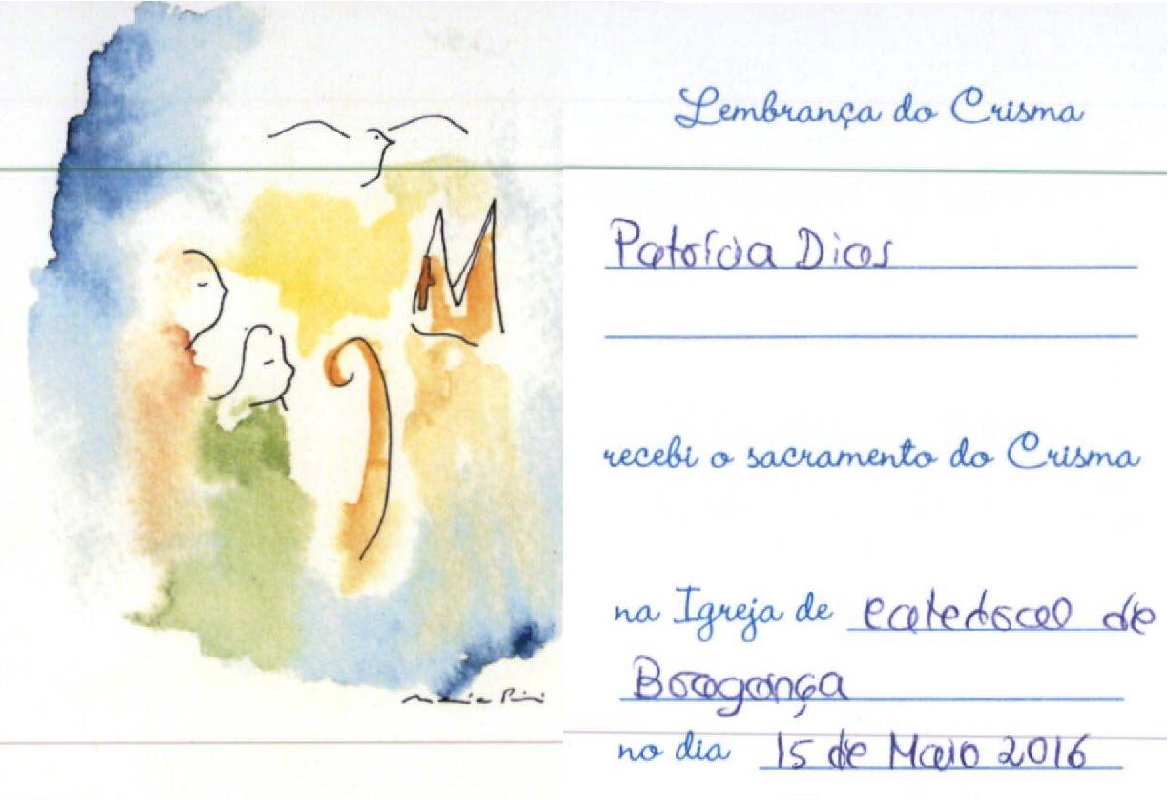 Lembrança do Crisma
Patrícia Dias
recebi o sacramento do Crisma
na Igreja de catedral de
Bragança
no dia 15 de Maio 2016